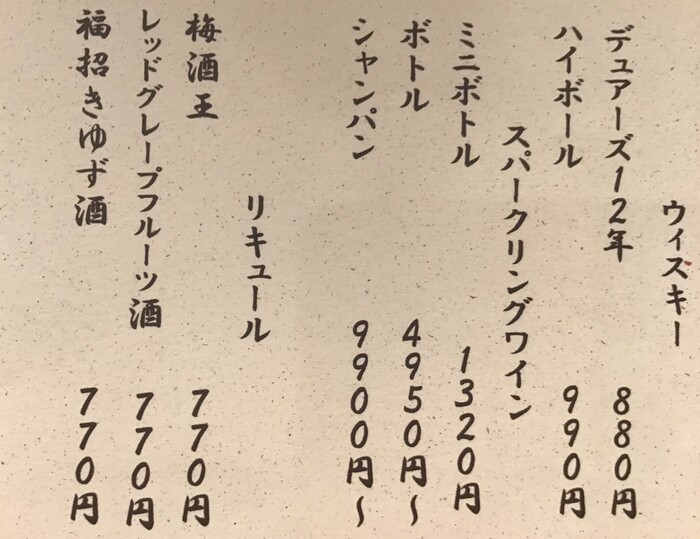 ウィスキー
デュアーズ12年 880円
ハイボール 990円
スパークリングワイン
ミニボトル 1320円
ボトル 4950円~
シャンパン 9900円~
リキュール
梅酒王 770円
レッドグレープフルーツ酒 770円
福招きゆず酒 770円